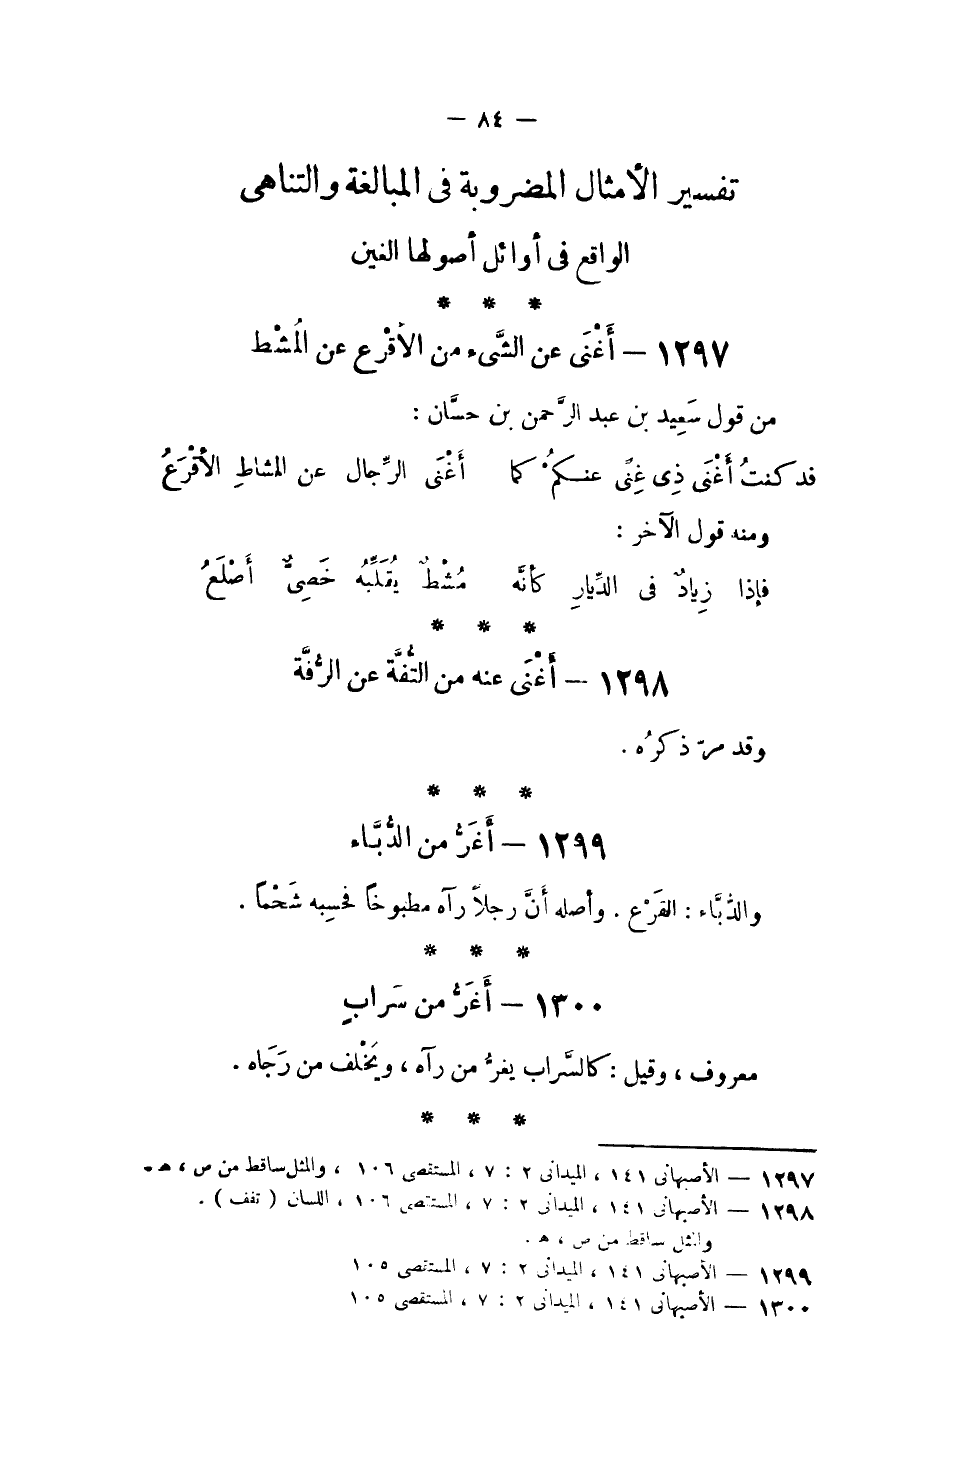 — ٨٤ —
تفسير الأمثال المضروبة فى المبالغة والتناهى
الواقع فى أوائل أصولها الغين
* * *
١٢٩٧ — أَغْنَى عن الشَّىء من الأقْرع عن المُشْط
من قول سَعِيد بن عبد الرَّحمن بن حسَّان :
قد كنتُ أَغْنَى ذِى غِنًى عنكمُ كما أَغْنَى الرِّجال عن المشاطِ الأقْرَعُ
ومنه قول الآخر :
فإذا زِيادٌ فى الدِّيارِ كأنَّه مُشْطٌ يُقَلِّبُه خَصِىٌّ أَصْلَعُ
* * *
١٢٩٨ — أَغْنَى عنه من التُّفَّة عن الرُّفَّة
وقد مرّ ذكرُه .
* * *
١٢٩٩ — أَغَرُّ من الدُّبَّاء
والدُّبَّاء : القَرْع . وأصله أَنَّ رجلاً رآه مطبوخًا فحسِبه شَحْمًا .
* * *
١٣٠٠ — أَغَرُّ من سَرابٍ
معروف ، وقيل : كالسَّراب يغرُّ من رآه ، ويَخْلف من رَجَاه .
* * *
١٢٩٧ — الأصبهانى ١٤١ ، الميدانى ٢ : ٧ ، المستقصى ١٠٦ ، والمثل ساقط من ص ، هـ .
١٢٩٨ — الأصبهانى ١٤١ ، الميدانى ٢ : ٧ ، المستقصى ١٠٦ ، اللسان ( تفف ) .
والمثل ساقط من ص ، هـ .
١٢٩٩ — الأصبهانى ١٤١ ، الميدانى ٢ : ٧ ، المستقصى ١٠٥
١٣٠٠ — الأصبهانى ١٤١ ، الميدانى ٢ : ٧ ، المستقصى ١٠٥